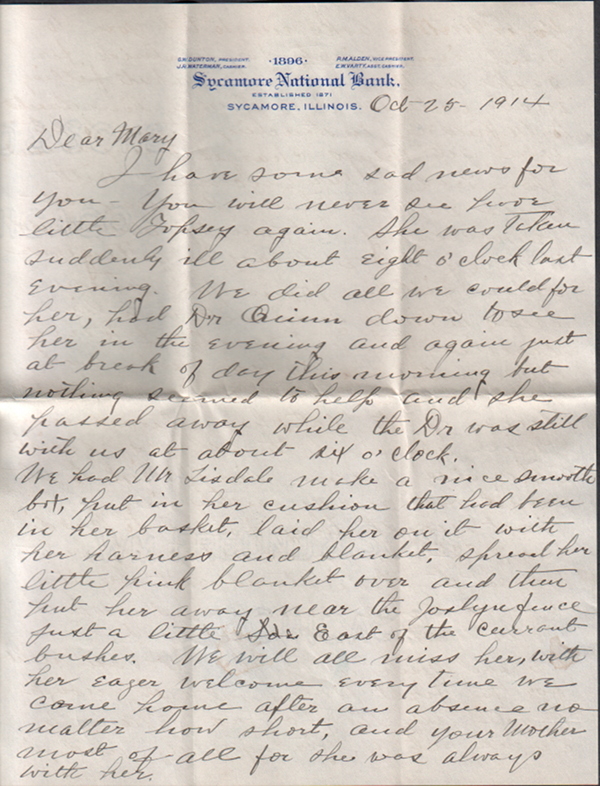 D.W. DUNTON, PRESIDENT. · 1896 · P.M. ALDEN, VICE PRESIDENT.
J.R. WATERMAN, CASHIER. E.W. VARTY, ASST. CASHIER.
Sycamore National Bank.
ESTABLISHED 1871
SYCAMORE, ILLINOIS. Oct 25 - 1914
Dear Mary
I have some sad news for
you - You will never see poor
little Topsey again. She was taken
suddenly ill about eight o'clock last
evening. We did all we could for
her, had Dr Quinn down to see
her in the evening and again just
at break of day this morning but
nothing seemed to help and she
passed away while the Dr was still
with us at about six o'clock.
We had Mr Tisdale make a nice smooth
box, put in her cushion that had been
in her basket, laid her on it with
her harness and blanket, spread her
little pink blanket over and then
put her away near the Joslyn fence
just a little East of the currant
bushes. We will all miss her, with
her eager welcome every time we
came home after an absence no
matter how short, and your Mother
most of all for she was always
with her.